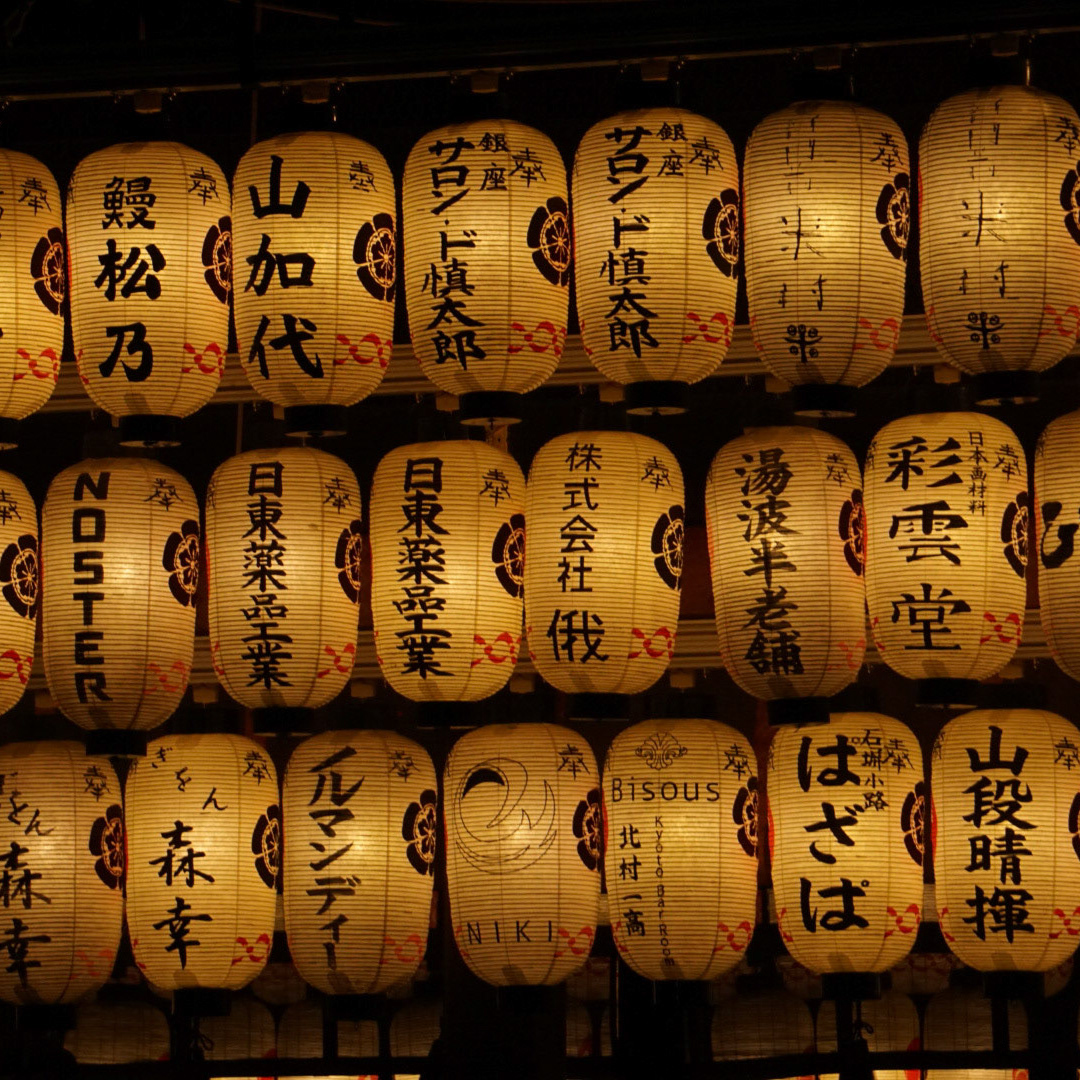 奉
鰻松乃
奉
山加代
奉
銀座
サロン・ド慎太郎
奉
銀座
サロン・ド慎太郎
奉
米
村
奉
米
村
奉
奉
NOSTER
奉
日東薬品工業
奉
日東薬品工業
奉
株式会社 俄
奉
湯波半老舗
奉
日本画材料
彩雲堂
奉
ぎをん
森幸
奉
ぎをん
森幸
奉
イルマンディー
奉
NIKI
奉
Bisous
Kyoto Bar room
北村一高
奉
石塀小路
ぱざぱ
奉
山段晴揮
奉